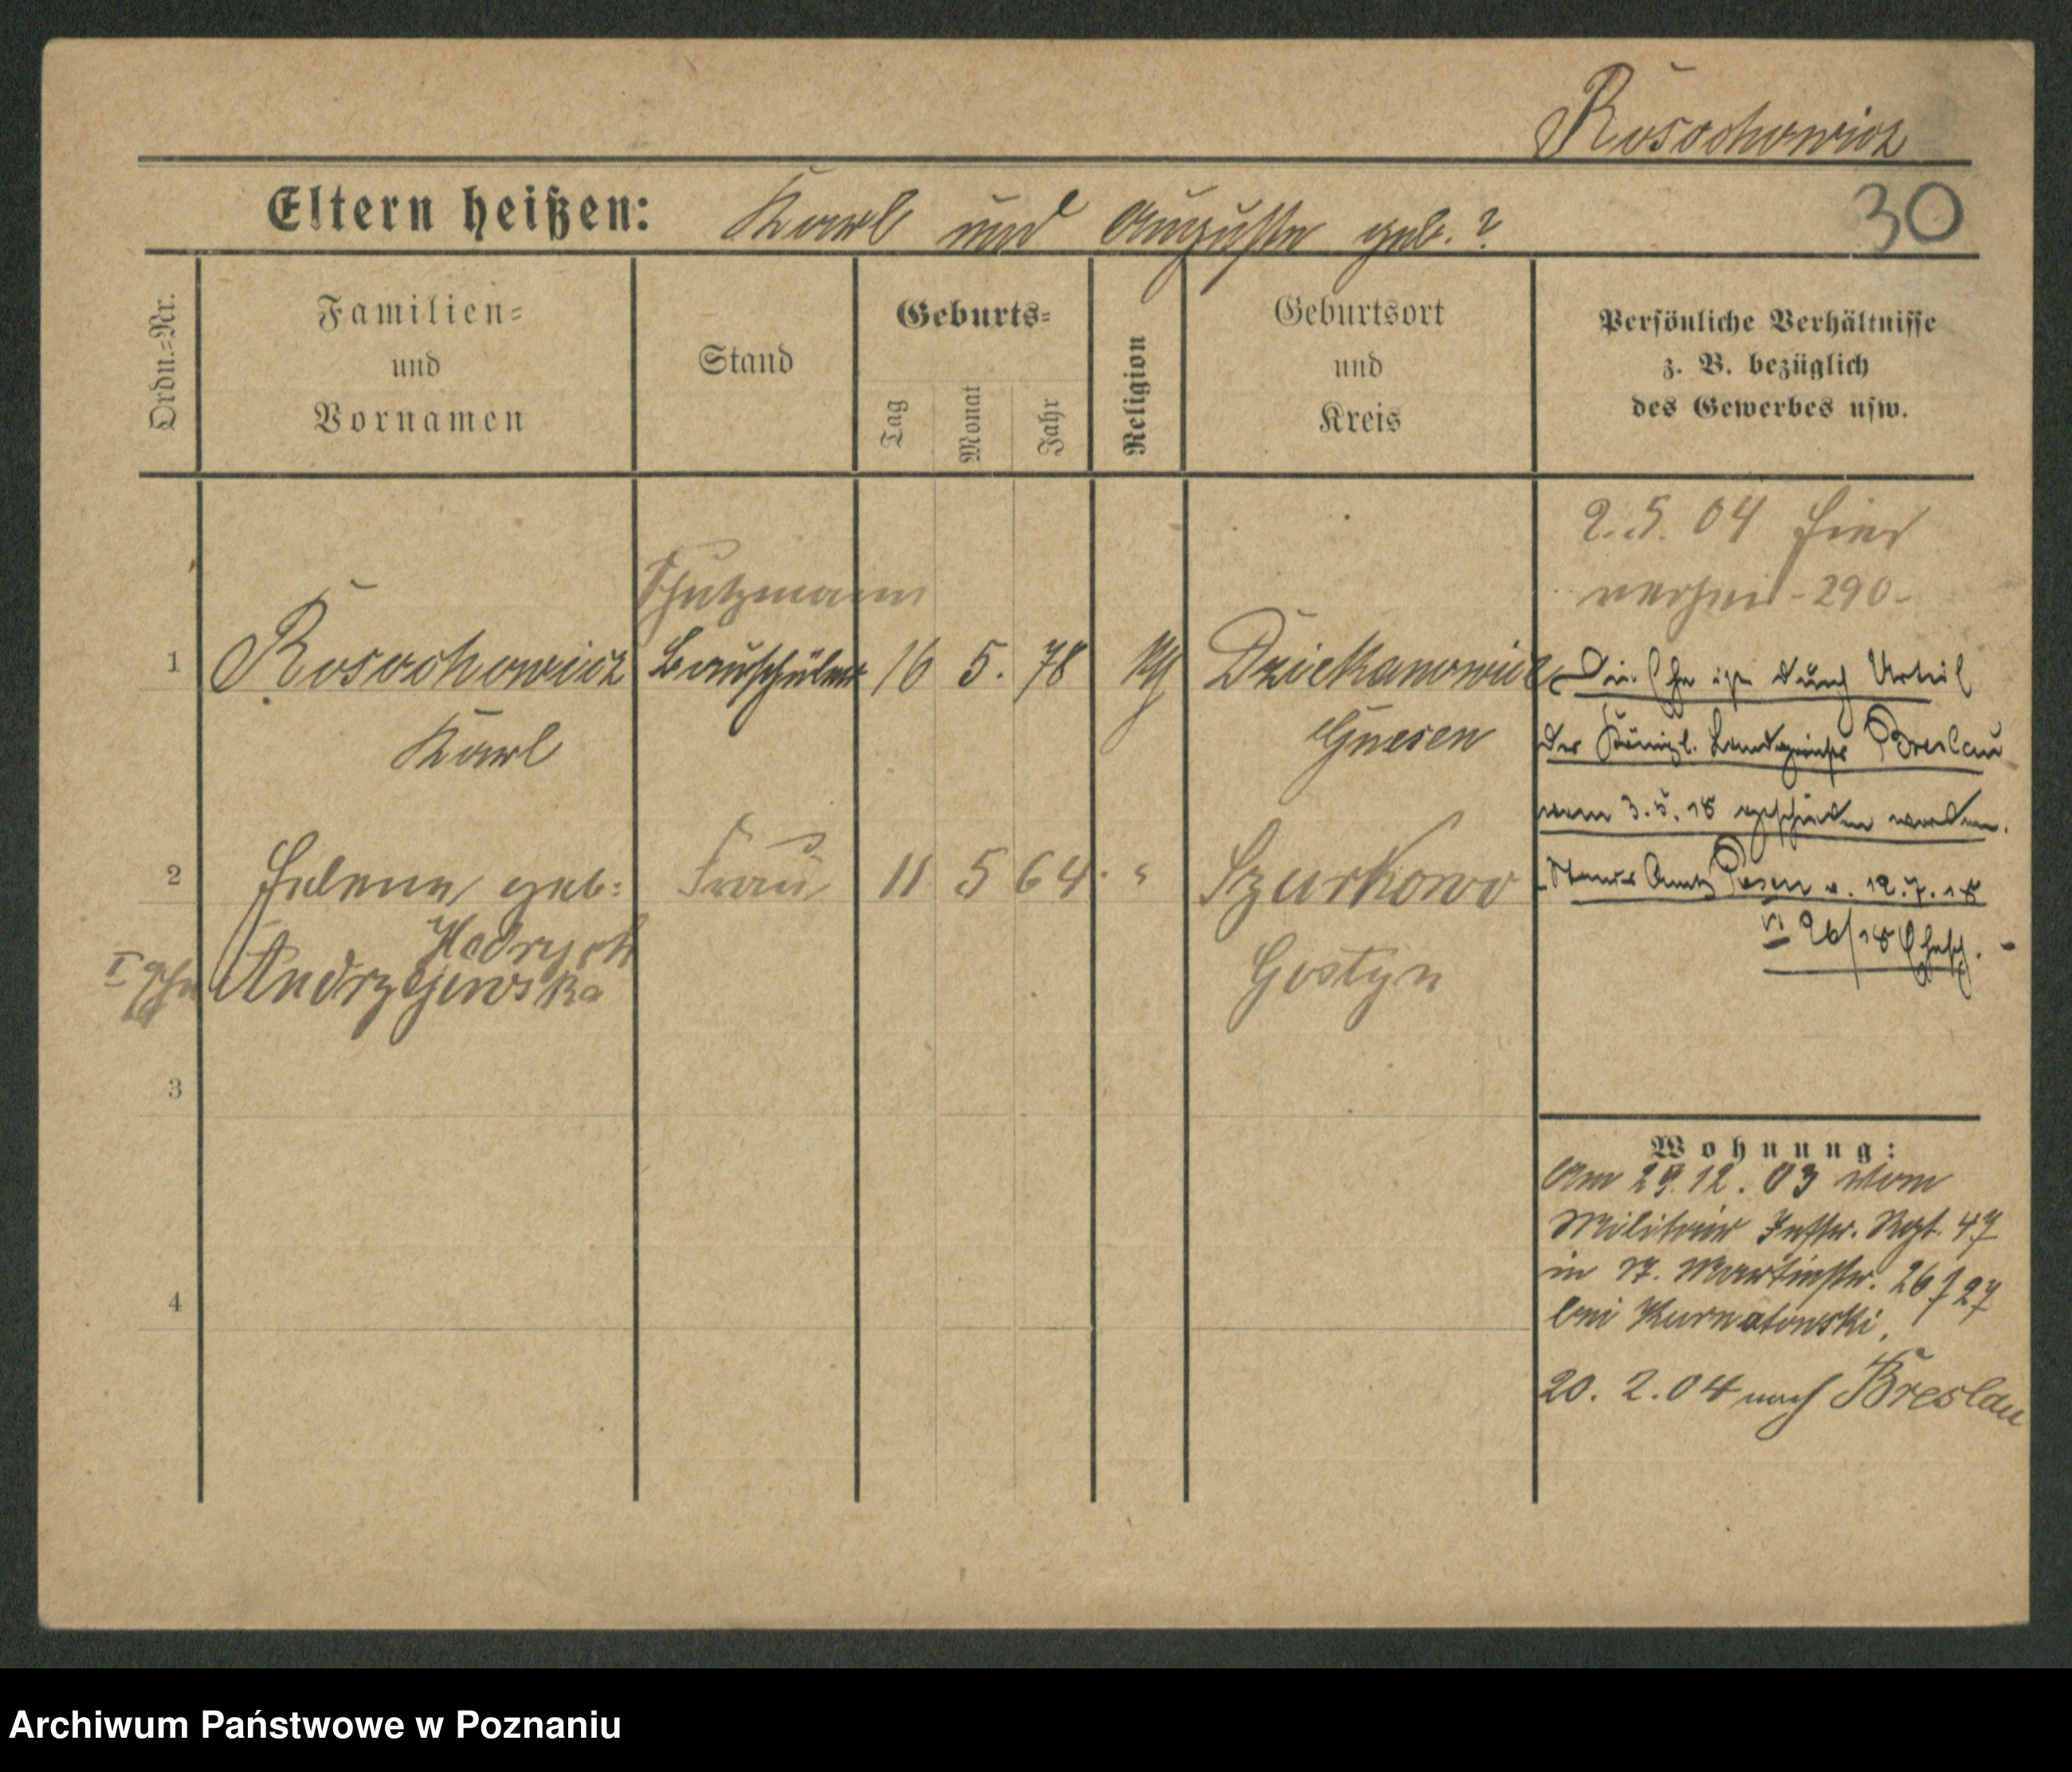 Rosochowicz
Eltern heißen: Karl und Auguste geb. ?
30
Ordn.=Nr.
Familien=
und
Vornamen
Stand
Geburts=
Tag
Monat
Jahr
Religion
Geburtsort
und
Kreis
Persönliche Verhältnisse
z. B. bezüglich
des Gewerbes usw.
2. 5. 04 hier
- 290 -
Schutzmann
1 Rosochowicz Bauschüler 16 5. 78 Dziekanowice
Karl Gnesen
Die Ehe ist durch Urteil
des Königl. Landgerichts Breslau
vom 3. 5. 18 geschieden worden.
Standes Amt Posen v. 12. 7. 18
VI 26/18 Ehesch. -
2 Helene geb: Frau 11 5 64. " Szurkowo
I Ehe Andrzejewska Gostyn
3
4
Wohnung:
Am 29. 12. 03 vom
Militair Inftr. Regt. 47
in 17. Martinstr. 26/27
bei Kurnatowski.
20. 2. 04 nach Breslau
Archiwum Państwowe w Poznaniu